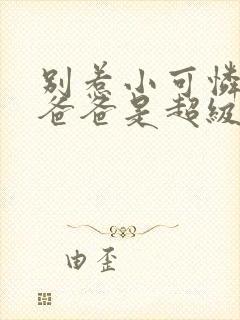 别惹小可憐
爸爸是超級
由歪